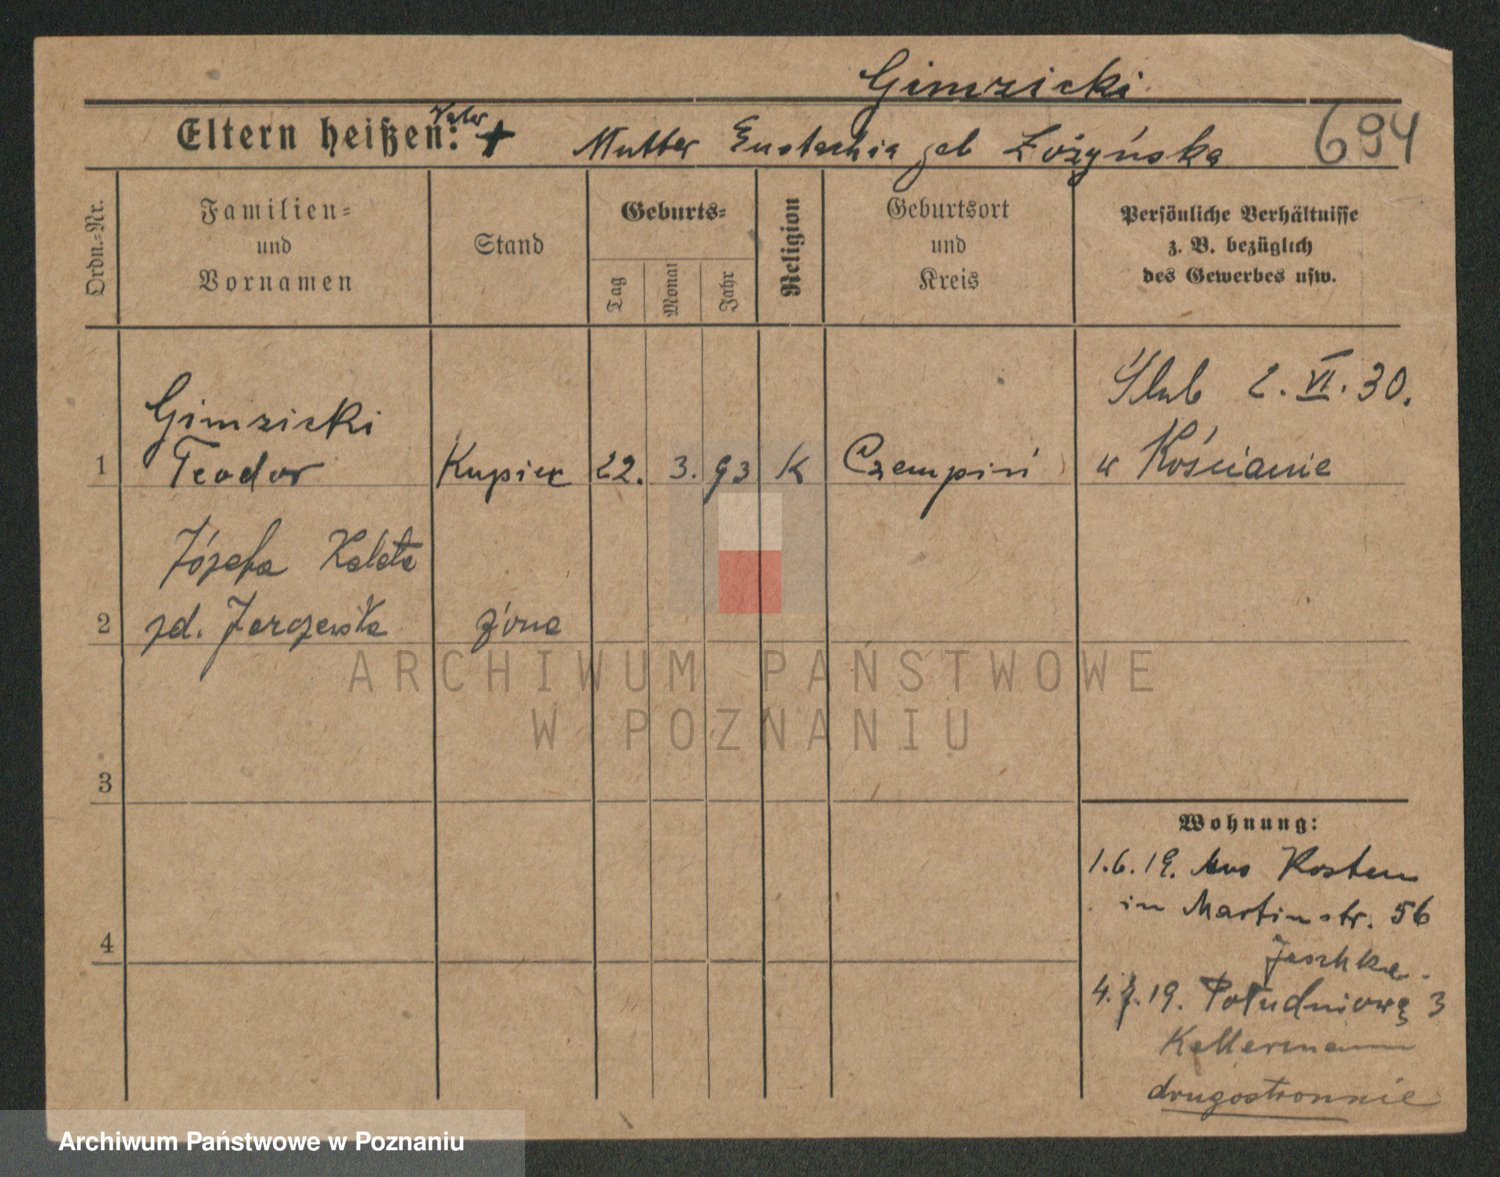 Gimzicki
Eltern heißen: Vater + Mutter Eustachia geb Łożyńska 694
Ordn.-Nr.
Familien-
und
Vornamen
Stand
Geburts-
Tag
Monat
Jahr
Religion
Geburtsort
und
Kreis
Persönliche Verhältnisse
z. B. bezüglich
des Gewerbes usw.
Ślub 2. VI. 30.
Gimzicki
1 Teodor Kupiec 22. 3. 93 K Czempiń w Kościanie
Józefa
2 zd. Jerczewska żona
ARCHIWUM PAŃSTWOWE
W POZNANIU
3
Wohnung:
1.6.19. Aus Kosten
in Martinstr. 56
Jeschke.
4
4.7.19. Południowa 3
Kellermann
drugostronnie
Archiwum Państwowe w Poznaniu